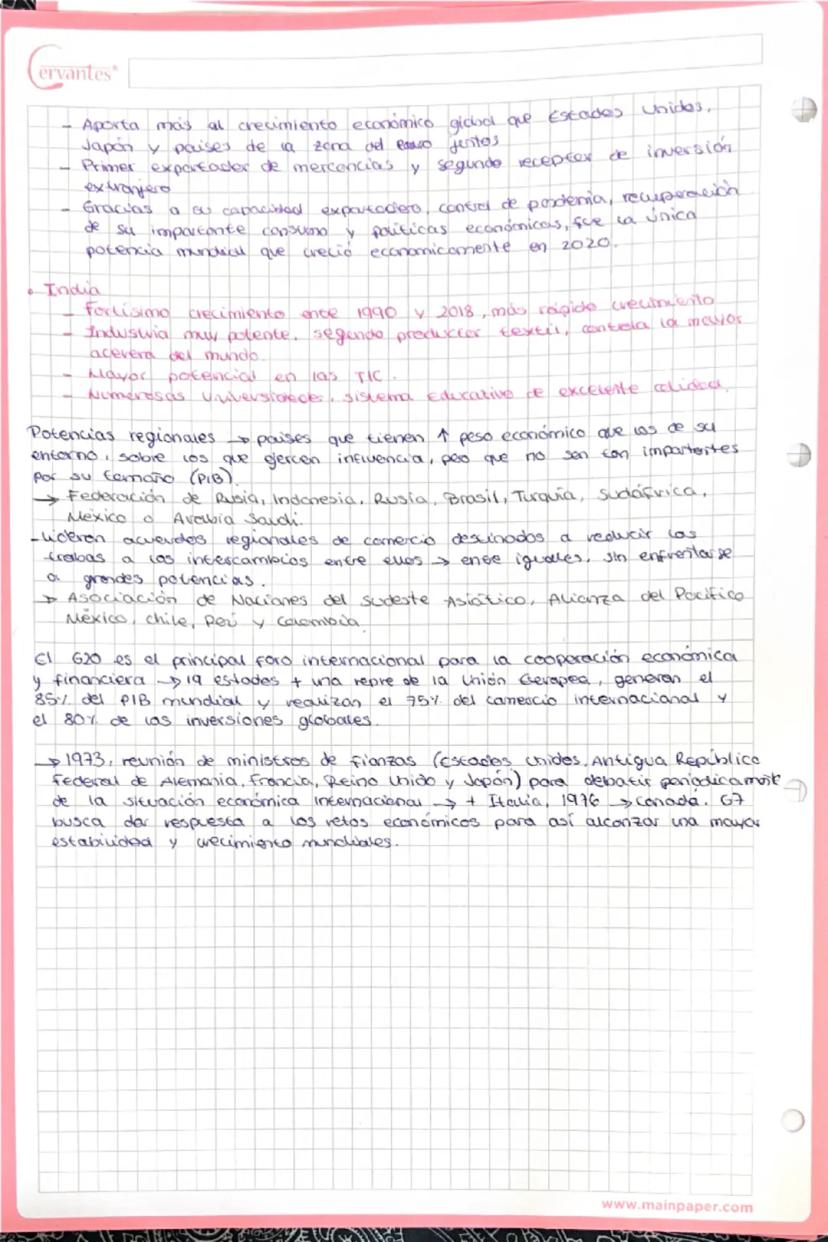 Cervantes®
- Aporta más al crecimiento económico global que Estados Unidos,
Japón y países de la zona del euro juntos
- Primer exportador de mercancías y segundo receptor de inversión
extranjera
- Gracias a su capacidad exportadora, control de pandemia, recuperación
de su importante consumo y políticas económicas, fue la única
potencia mundial que creció economicamente en 2020.
• India
- Fortísimo crecimiento ente 1990 y 2018, más rápido crecimiento
- Industria muy potente, segundo productor textil, controla la mayor
acerera del mundo.
- Mayor potencial en las TIC.
- Numerosas Universidades, sistema educativo de excelente calidad.
Potencias regionales → países que tienen ↑ peso económico que los de su
entorno, sobre los que ejercen influencia, peo que no sen tan importantes
por su tamaño (PIB).
→ Federación de Rusia, Indonesia, Rusia, Brasil, Turquía, Sudáfrica,
México o Arabia Saudi.
- Lideran acuerdos regionales de comercio destinados a reducir las
trabas a los intercambios entre ellos → ente iguales, sin enfrentarse
a grandes potencias.
→ Asociación de Naciones del sudeste Asiático, Alianza del Pacífico
México, Chile, Perú y Colombia.
El G20 es el principal foro internacional para la cooperación económica
y financiera → 19 estados + una repre de la Unión Europea, generan el
85% del PIB mundial y realizan el 75% del comercio internacional y
el 80% de las inversiones globales.
→ 1973, reunión de ministros de fianzas (Estados Unidos, Antigua República
Federal de Alemania, Francia, Reino Unido y Japón) para debatir periodicamente
de la situación económica internacional → + Italia, 1976 → Canadá. G7
busca dar respuesta a los retos económicos para así alcanzar una mayor
estabilidad y crecimiento mundiales.
www.mainpaper.com